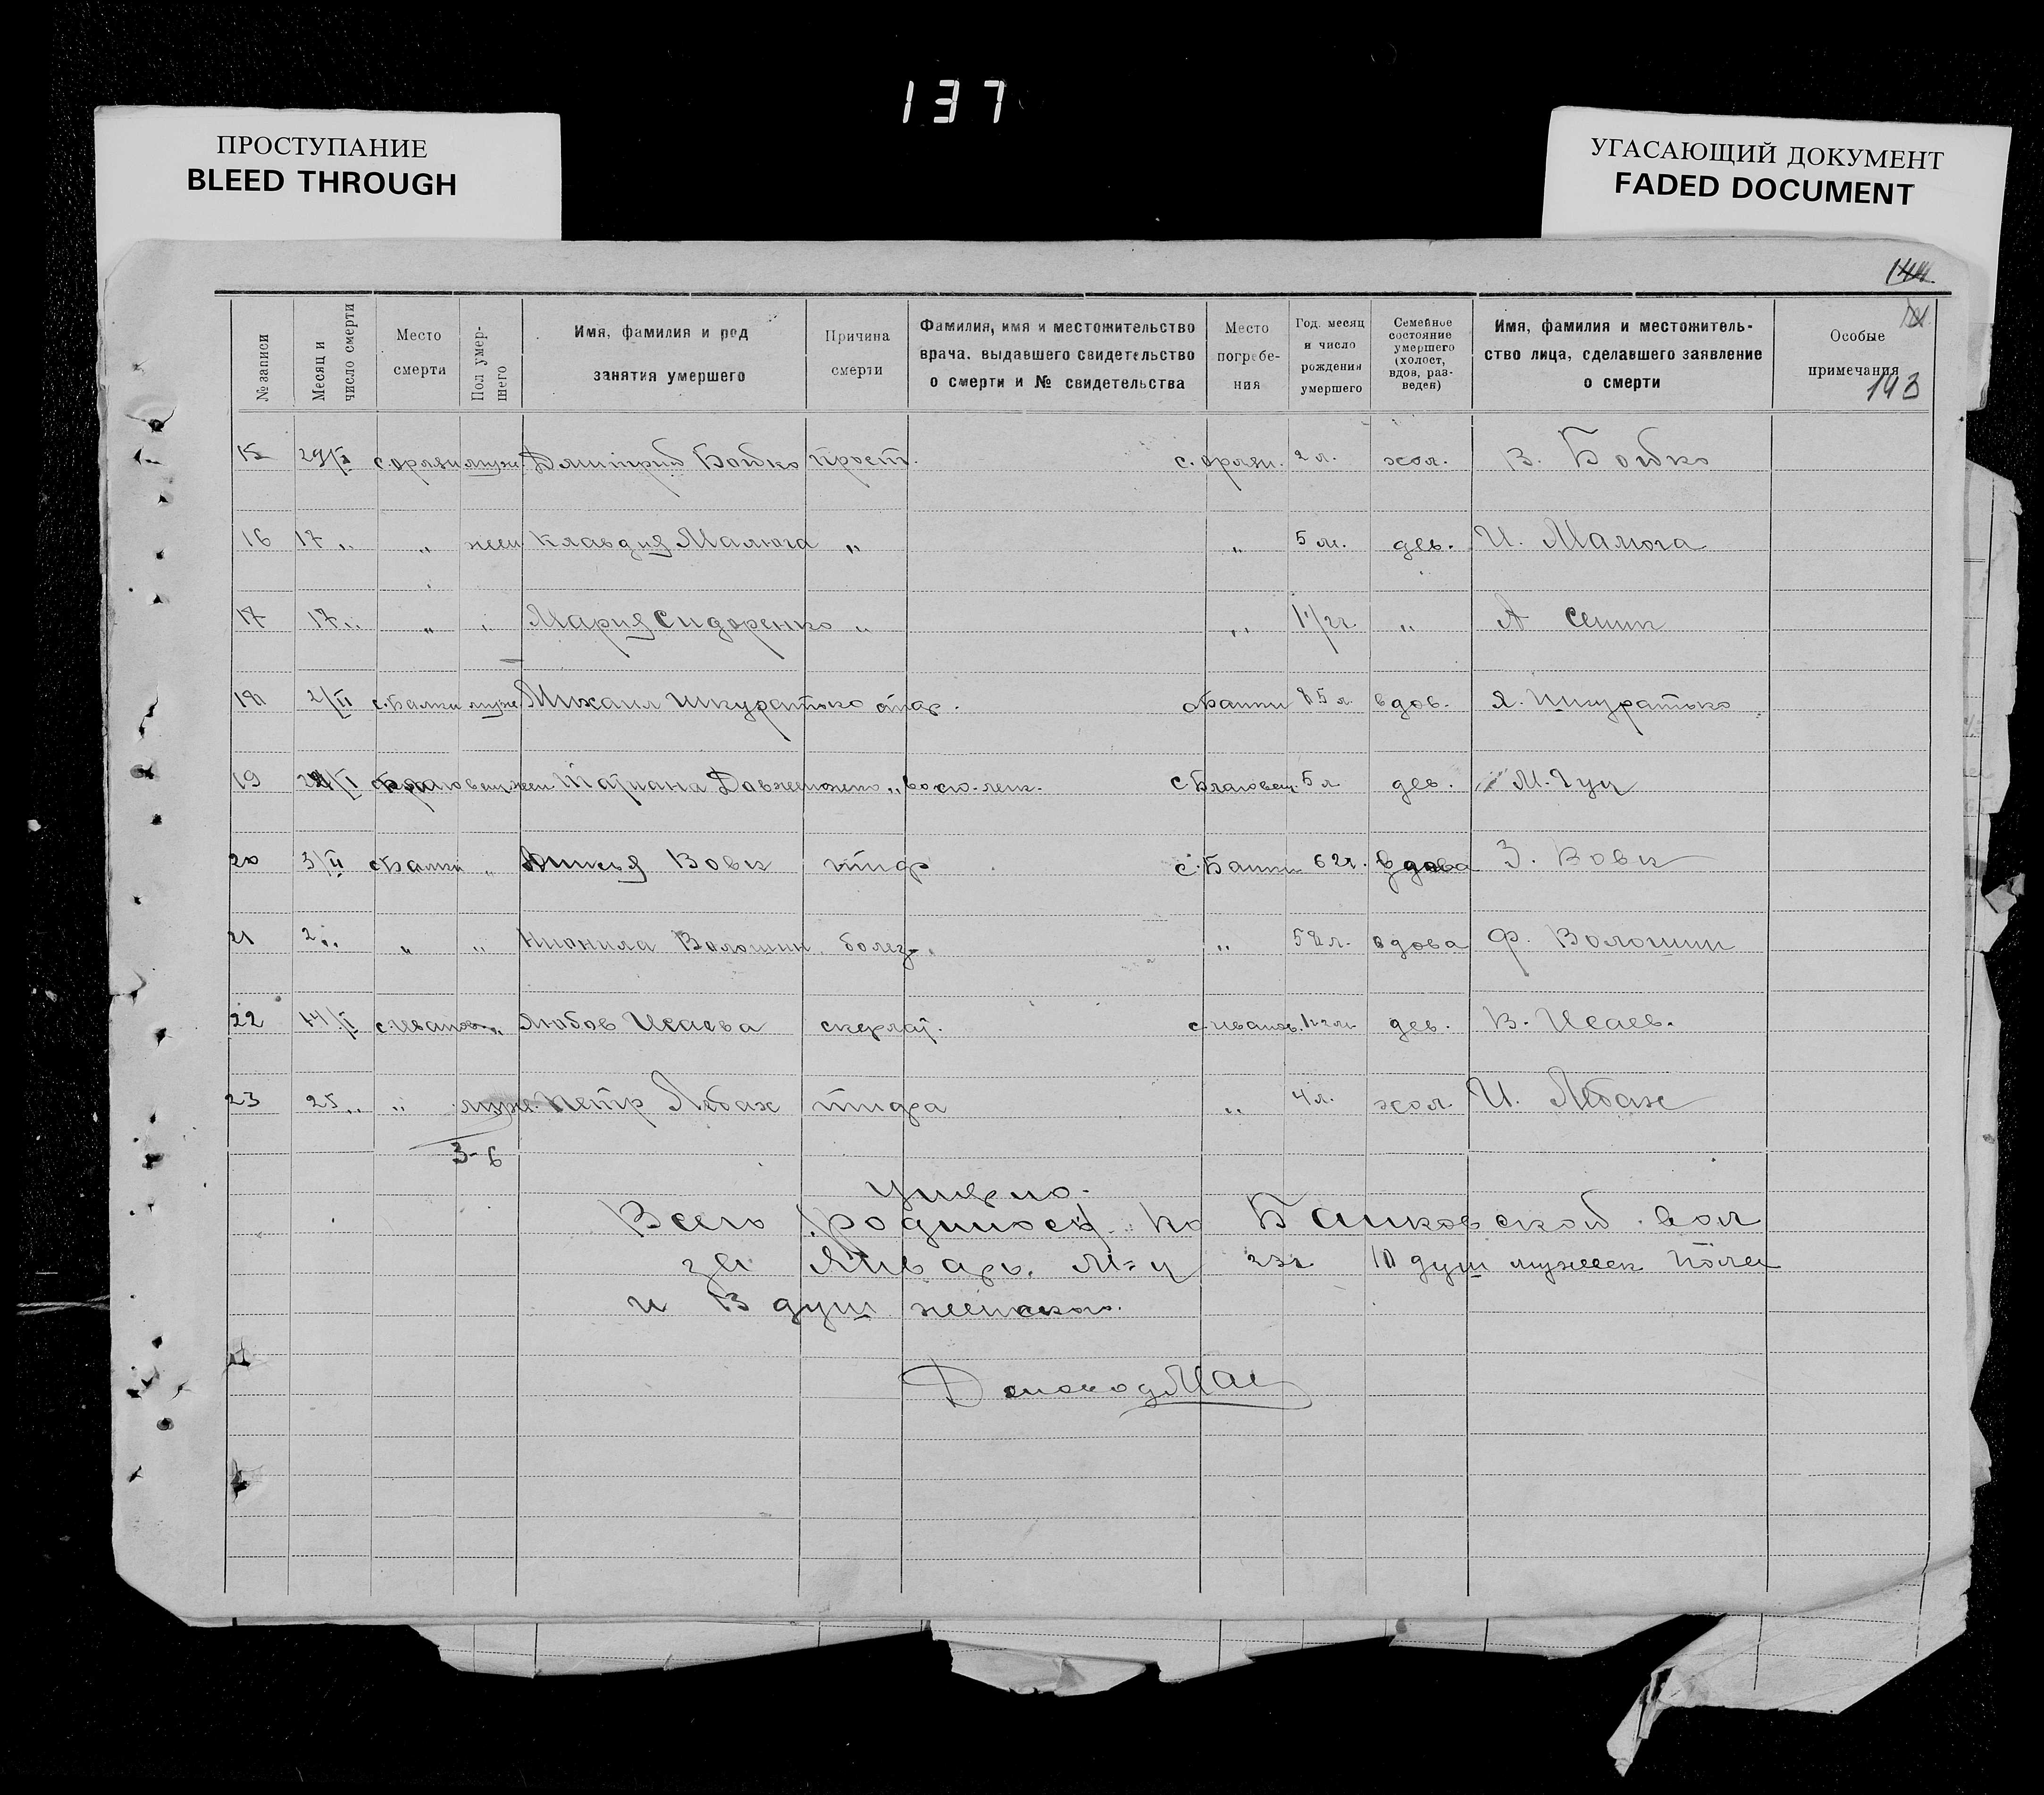 137
ПРОСТУПАНИЕ
BLEED THROUGH
УГАСАЮЩИЙ ДОКУМЕНТ
FADED DOCUMENT
144
143
№ записи
Месяц и число смерти
Место смерти
Пол умершего
Имя, фамилия и род занятия умершего
Причина смерти
Фамилия, имя и местожительство врача, выдавшего свидетельство о смерти и № свидетельства
Место погребения
Год, месяц и число рождения умершего
Семейное состояние умершего (холост, вдов, разведен)
Имя, фамилия и местожительство лица, сделавшего заявление о смерти
Особые примечания
15 29/I муж. Дмитрий Бойко прост. 2 л. хол. В. Бойко
16 17 „ „ жен Клавдия Малюга „ „ 5 м. дев. И. Малюга
17 17 „ „ „ Мария Сидоренко „ „ 1 1/2 г. „ А
18 2/II с. Балки муж Михаил Шкуратько стар. с Балки 85 л. вдов. Я. Шкуратько
19 жен. Татиана с. Благовещ. 5 л. дев. М. Гуц
20 3/II с Балки „ Вовк тиф с. Балки 62 г. вдова З. Вовк
21 2 „ „ „ Нионила Волошин болез. „ 58 л. вдова Ф. Волошин
22 14/I с. Иванов „ Любов Исаева скерлат. с. Иванов. дев. В. Исаев.
23 25 „ „ муж. Петр тифа „ 4 л. хол. И.
3-6
умерло.
Всего родилось по Балковской вол
за Январь м-ц 23 г 10 душ мужеск пола
и 13 душ женского.
Деловод